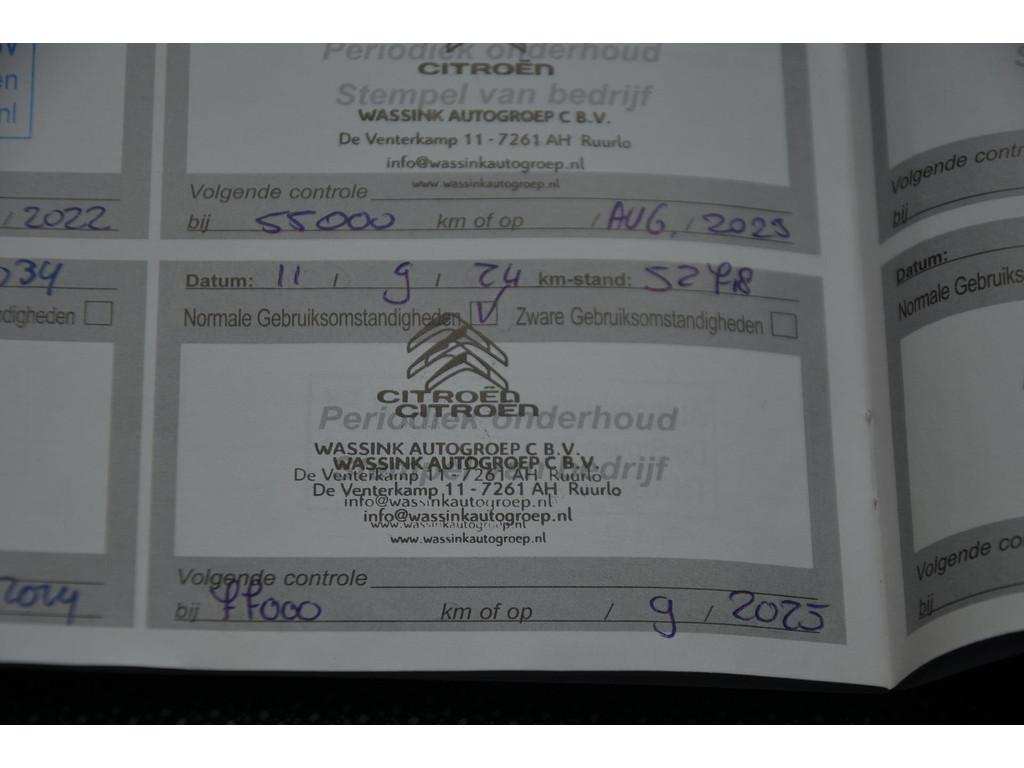 en
nl
/ 2022
Periodiek onderhoud
CITROËN
Stempel van bedrijf
WASSINK AUTOGROEP C B.V.
De Venterkamp 11 - 7261 AH Ruurlo
info@wassinkautogroep.nl
www.wassinkautogroep.nl
Volgende controle
bij 55000 km of op / AUG, / 2023
034
digheden
2024
Datum: 11 / 9 / 24 km-stand: 52718
Normale Gebruiksomstandigheden V Zware Gebruiksomstandigheden
CITROËN
CITROËN
Periodiek onderhoud
WASSINK AUTOGROEP C B.V.
WASSINK AUTOGROEP C B.V.
Stempel van bedrijf
De Venterkamp 11 - 7261 AH Ruurlo
De Venterkamp 11 - 7261 AH Ruurlo
info@wassinkautogroep.nl
info@wassinkautogroep.nl
www.wassinkautogroep.nl
www.wassinkautogroep.nl
Volgende controle
bij 77000 km of op / 9 / 2025
Volgende contr
bij
Datum:
Normale Gebruiks
Volgende co
bij